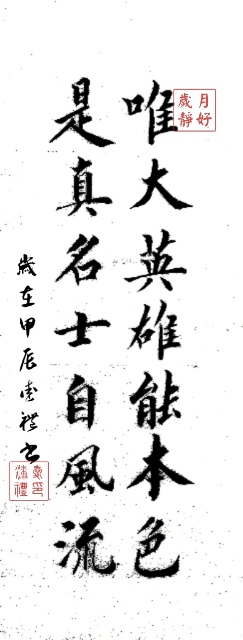 唯大英雄能本色
是真名士自風流
歲在甲辰禮書
月好
歲靜